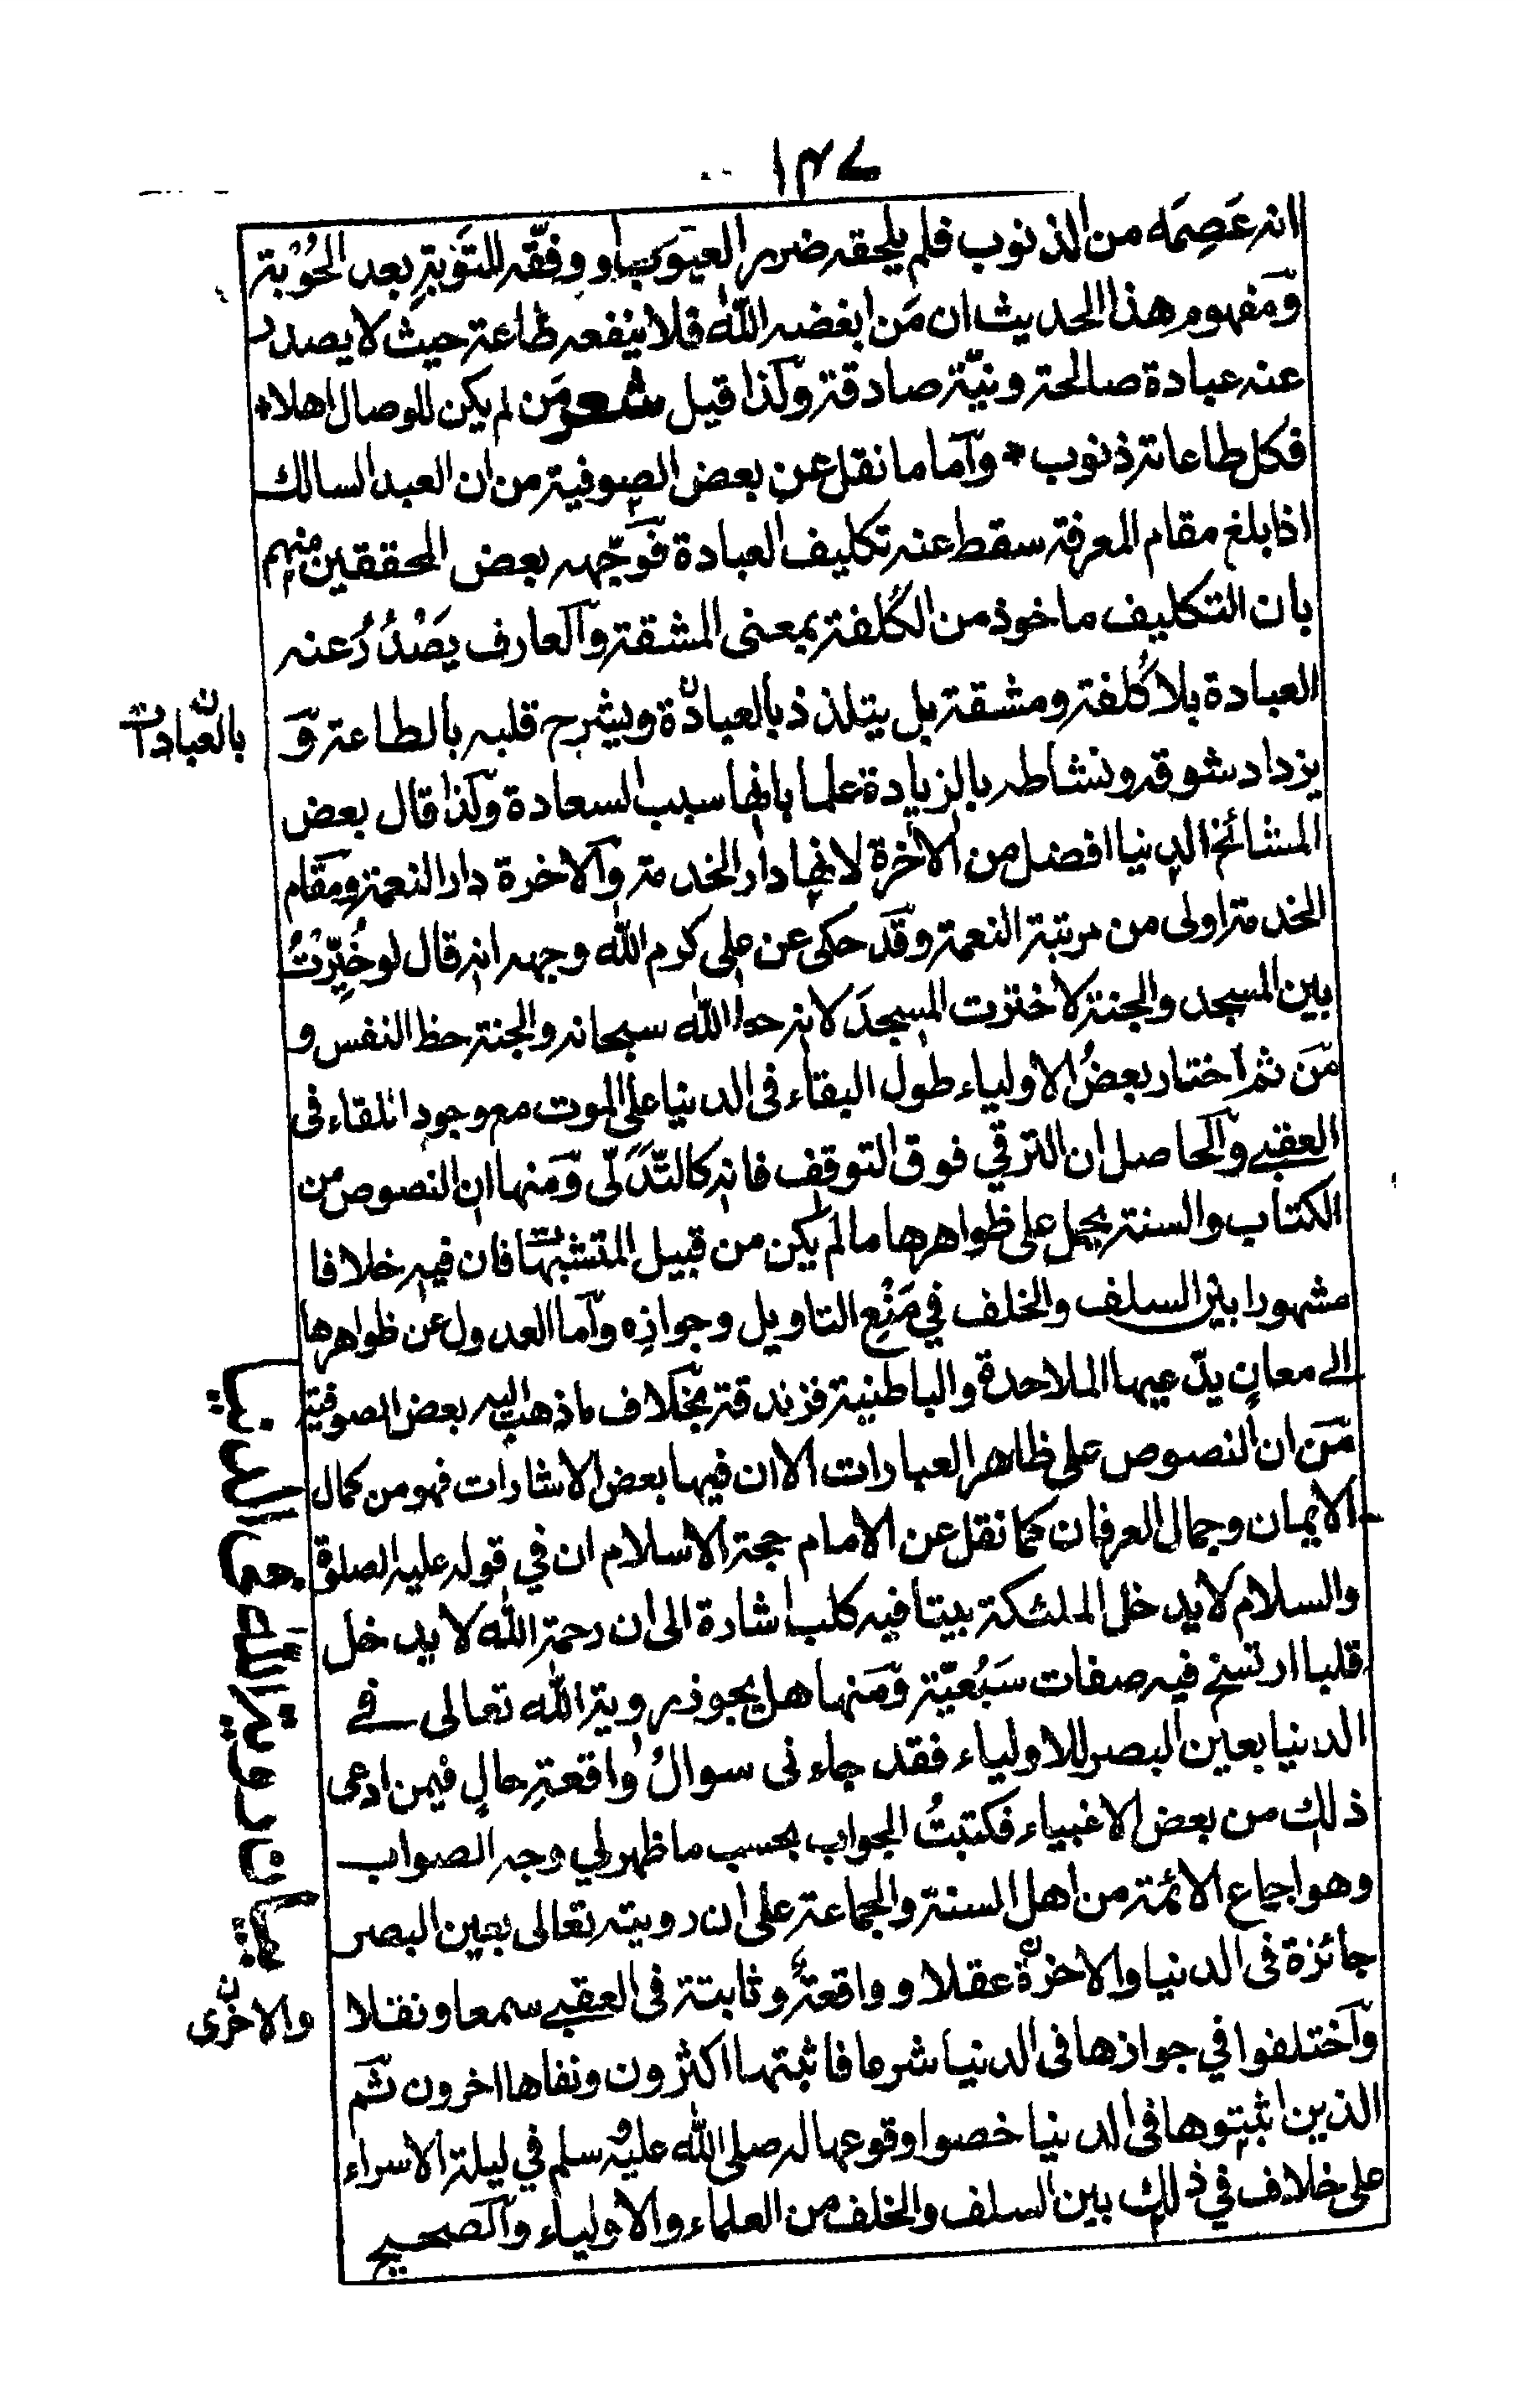 ١٤٧
انه عَصِمَه من الذنوب فلم يلحقه ضرر العيوب او وفّقه للتَوبةِ بعد الحُوْبة
ومفهوم هذا الحديث ان مَن ابغضه اللّٰه فلا ينفعه طاعة حيث لا يصدر
عنه عبادة صالحة ونيّة صادقة ولذا قيل شعر مَن لم يكن للوصال اهلا *
فكل طاعاته ذنوب * واما ما نقل عن بعض الصوفية من ان العبد السالك
اذا بلغ مقام المعرفة سقط عنه تكليف العبادة فوَجّهه بعض المحققين منهم
بان التكليف ماخوذ من الكُلفة بمعنى المشقة والعارف يَصْدُرُ عنه
العبادة بلا كُلفة ومشقة بل يتلذذ بالعبادة ويشرح قلبه بالطاعة و
بالعبادات
يزداد شوقه ونشاطه بالزيادة علما بانها سبب السعادة ولذا قال بعض
المشائخ الدنيا افضل من الاخرة لانها دار الخدمة والاخرة دار النعمة ومقام
الخدمة اولى من مرتبة النعمة وقد حكى عن على كرم اللّٰه وجهه انه قال لو خُيِّرْتُ
بين المسجد والجنة لاخترت المسجدَ لانه حق اللّٰه سبحانه والجنة حظ النفس و
من ثم اختار بعضُ الاولياء طول البقاء فى الدنيا على الموت مع وجود اللقاء فى
العقبے والحاصل ان الترقي فوق التوقف فانه كالتَّدَلّى ومنها ان النصوص من
الكتاب والسنة يحمل على ظواهرها ما لم يكن من قبيل المتشبهات فان فيه خلافا
مشهورا بين السلف والخلف في مَنْعِ التاويل وجوازِه واما العدول عن ظواهرها
الے معانٍ يدّعيها الملاحدة والباطنية فزندقة بخلاف ما ذهب اليه بعض الصوفية
من ان النصوص على ظاهر العبارات الا ان فيها بعض الاشارات فهو من كمال
الايمان وجمال العرفان كما نقل عن الامام حجة الاسلام ان في قوله عليه الصلوة
والسلام لا يدخل الملئكة بيتا فيه كلب اشارة الى ان رحمة اللّٰه لا يدخل
قلبا ارتسخ فيه صفات سَبُعيّة ومنها هل يجوز رويته اللّٰه تعالى فے
الدنيا بعين البصر للاولياء فقد جاء نى سوالُ واقعةِ حالٍ فيمن ادعى
ذلك من بعض الاغبياء فكتبتُ الجواب بحسب ما ظهر لي وجه الصواب
وهو اجماع الائمة من اهل السنة والجماعة على ان رويته تعالى بعين البصر
جائزة فى الدنيا والاخرة عقلا وواقعة وثابتة فى العقبے سمعا ونقلا
والاخرى
واختلفوا في جوازها فى الدنيا شرعا فاثبتها اكثرون ونفاها اخرون ثم
الذين اثبتوها فى الدنيا خصوا وقوعها له صلى اللّٰه عليه وسلم في ليلة الاسراء
على خلاف في ذلك بين السلف والخلف من العلماء والاولياء والصحيح